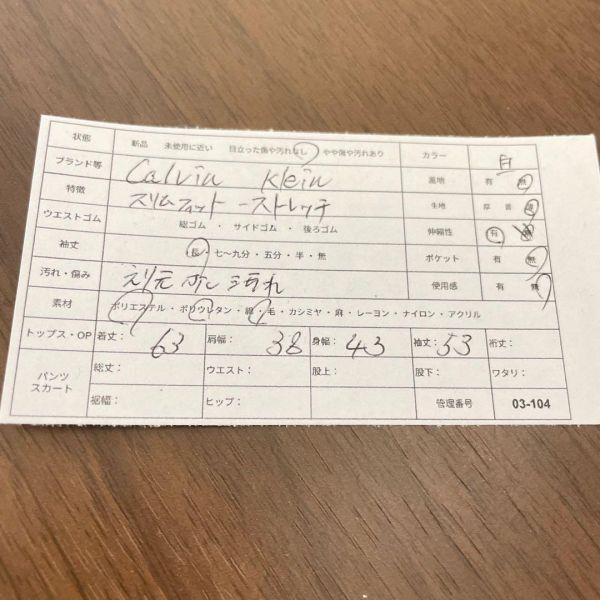 状態 新品 未使用に近い 目立った傷や汚れなし やや傷や汚れあり カラー 白
ブランド等 Calvin Klein 裏地 有 無
特徴 スリムフィット ーストレッチ 生地 厚 普
ウエストゴム 総ゴム ・ サイドゴム ・ 後ろゴム 伸縮性 有 無
袖丈 長・七〜九分・五分・半・無 ポケット 有 無
汚れ・傷み えり元 汚れ 使用感 有 無
素材 ポリエステル・ポリウレタン・綿・毛・カシミヤ・麻・レーヨン・ナイロン・アクリル
トップス・OP 着丈: 63 肩幅: 38 身幅: 43 袖丈: 53 裄丈:
パンツ スカート 総丈: ウエスト: 股上: 股下: ワタリ:
裾幅: ヒップ: 管理番号 03-104